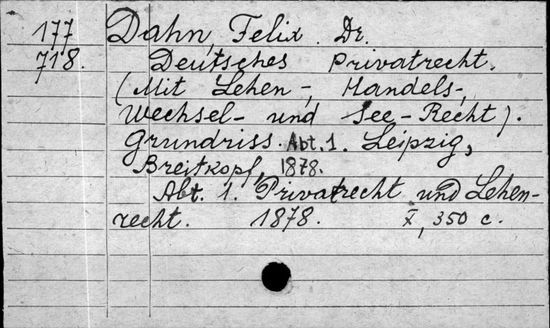 177 Dahn, Felix. Dr.
718. Deutsches Privatrecht.
(Mit Lehen-, Handels-,
Wechsel- und See-Recht).
Grundriss. Abt. 1. Leipzig,
Breitkopf, 1878.
Abt. 1. Privatrecht und Lehen-
recht. 1878. X, 350 c.